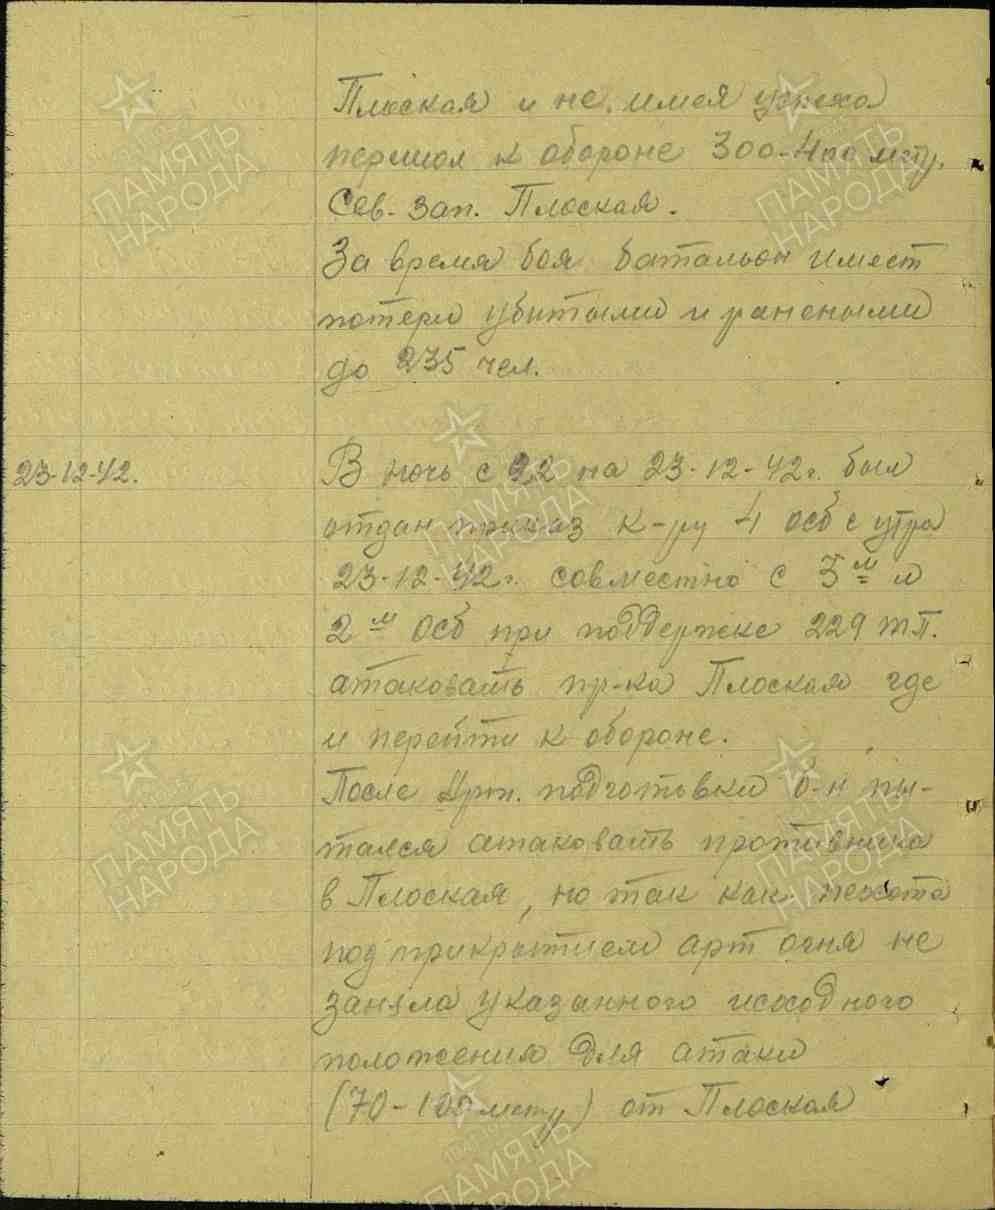 Плоская и не имея успеха
перешол к обороне 300-400 мтр.
Сев. зап. Плоская.
За время боя батальон имеет
потери убитыми и ранеными
до 235 чел.
23-12-42. В ночь с 22 на 23-12-42г. был
отдан приказ к-ру 4 осб с утра
23-12-42г. совместно с 3м и
2м осб при поддержке 229 тп.
атаковать пр-ка Плоская где
и перейти к обороне.
После Арт. подготовки б-н пы-
тался атаковать противника
в Плоская, но так как пехота
под прикрытием арт огня не
заняла указанного исходного
положения для атаки
(70-100 метр) от Плоская
ПАМЯТЬ НАРОДА